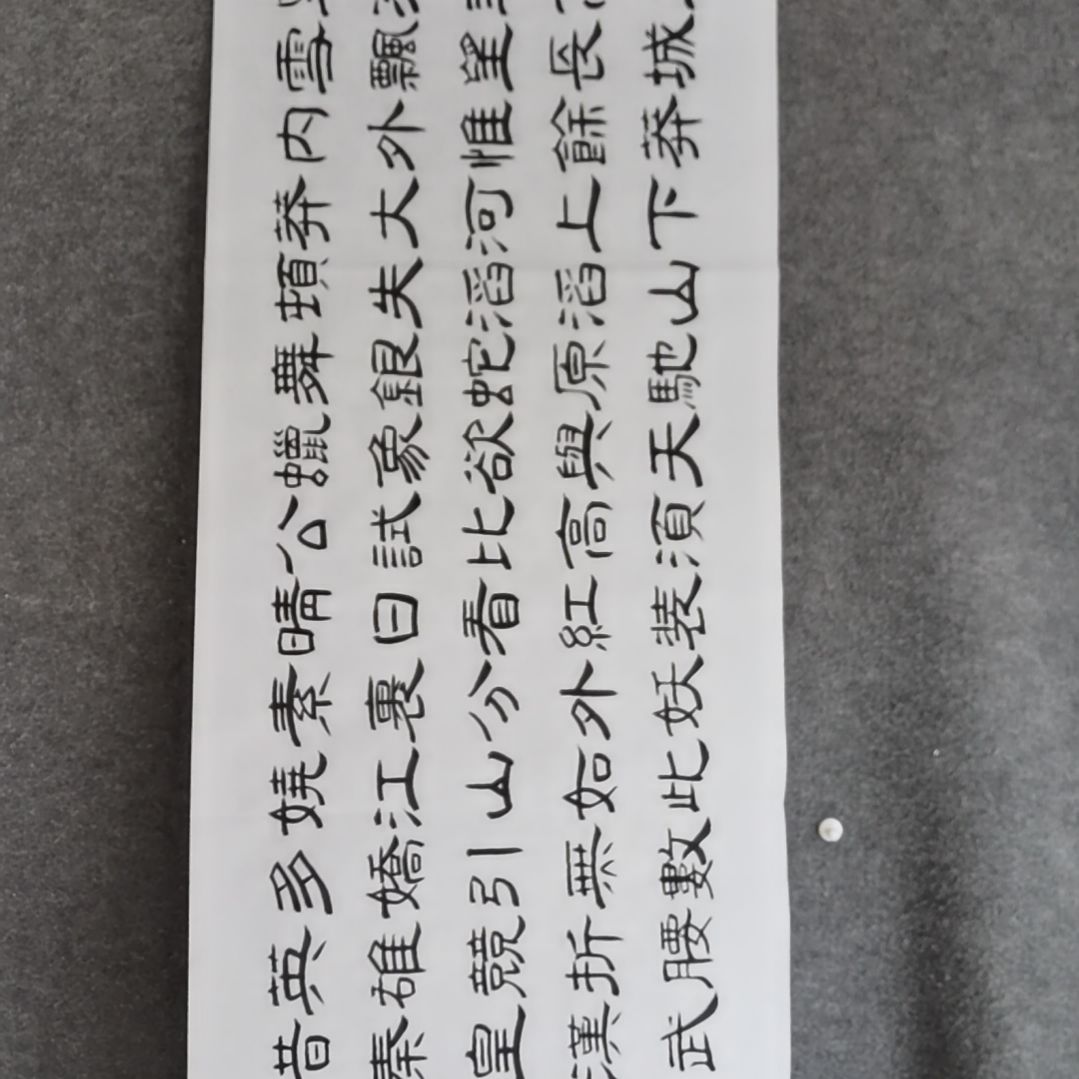 雪飄望長城
内外惟餘莽
莽大河上下
頓失滔滔山
舞銀蛇原馳
蠟象欲與天
公試比高湏
晴日看紅装
素裹分外妖
嬈江山如此
多嬌引無數
英雄競折腰
昔秦皇漢武